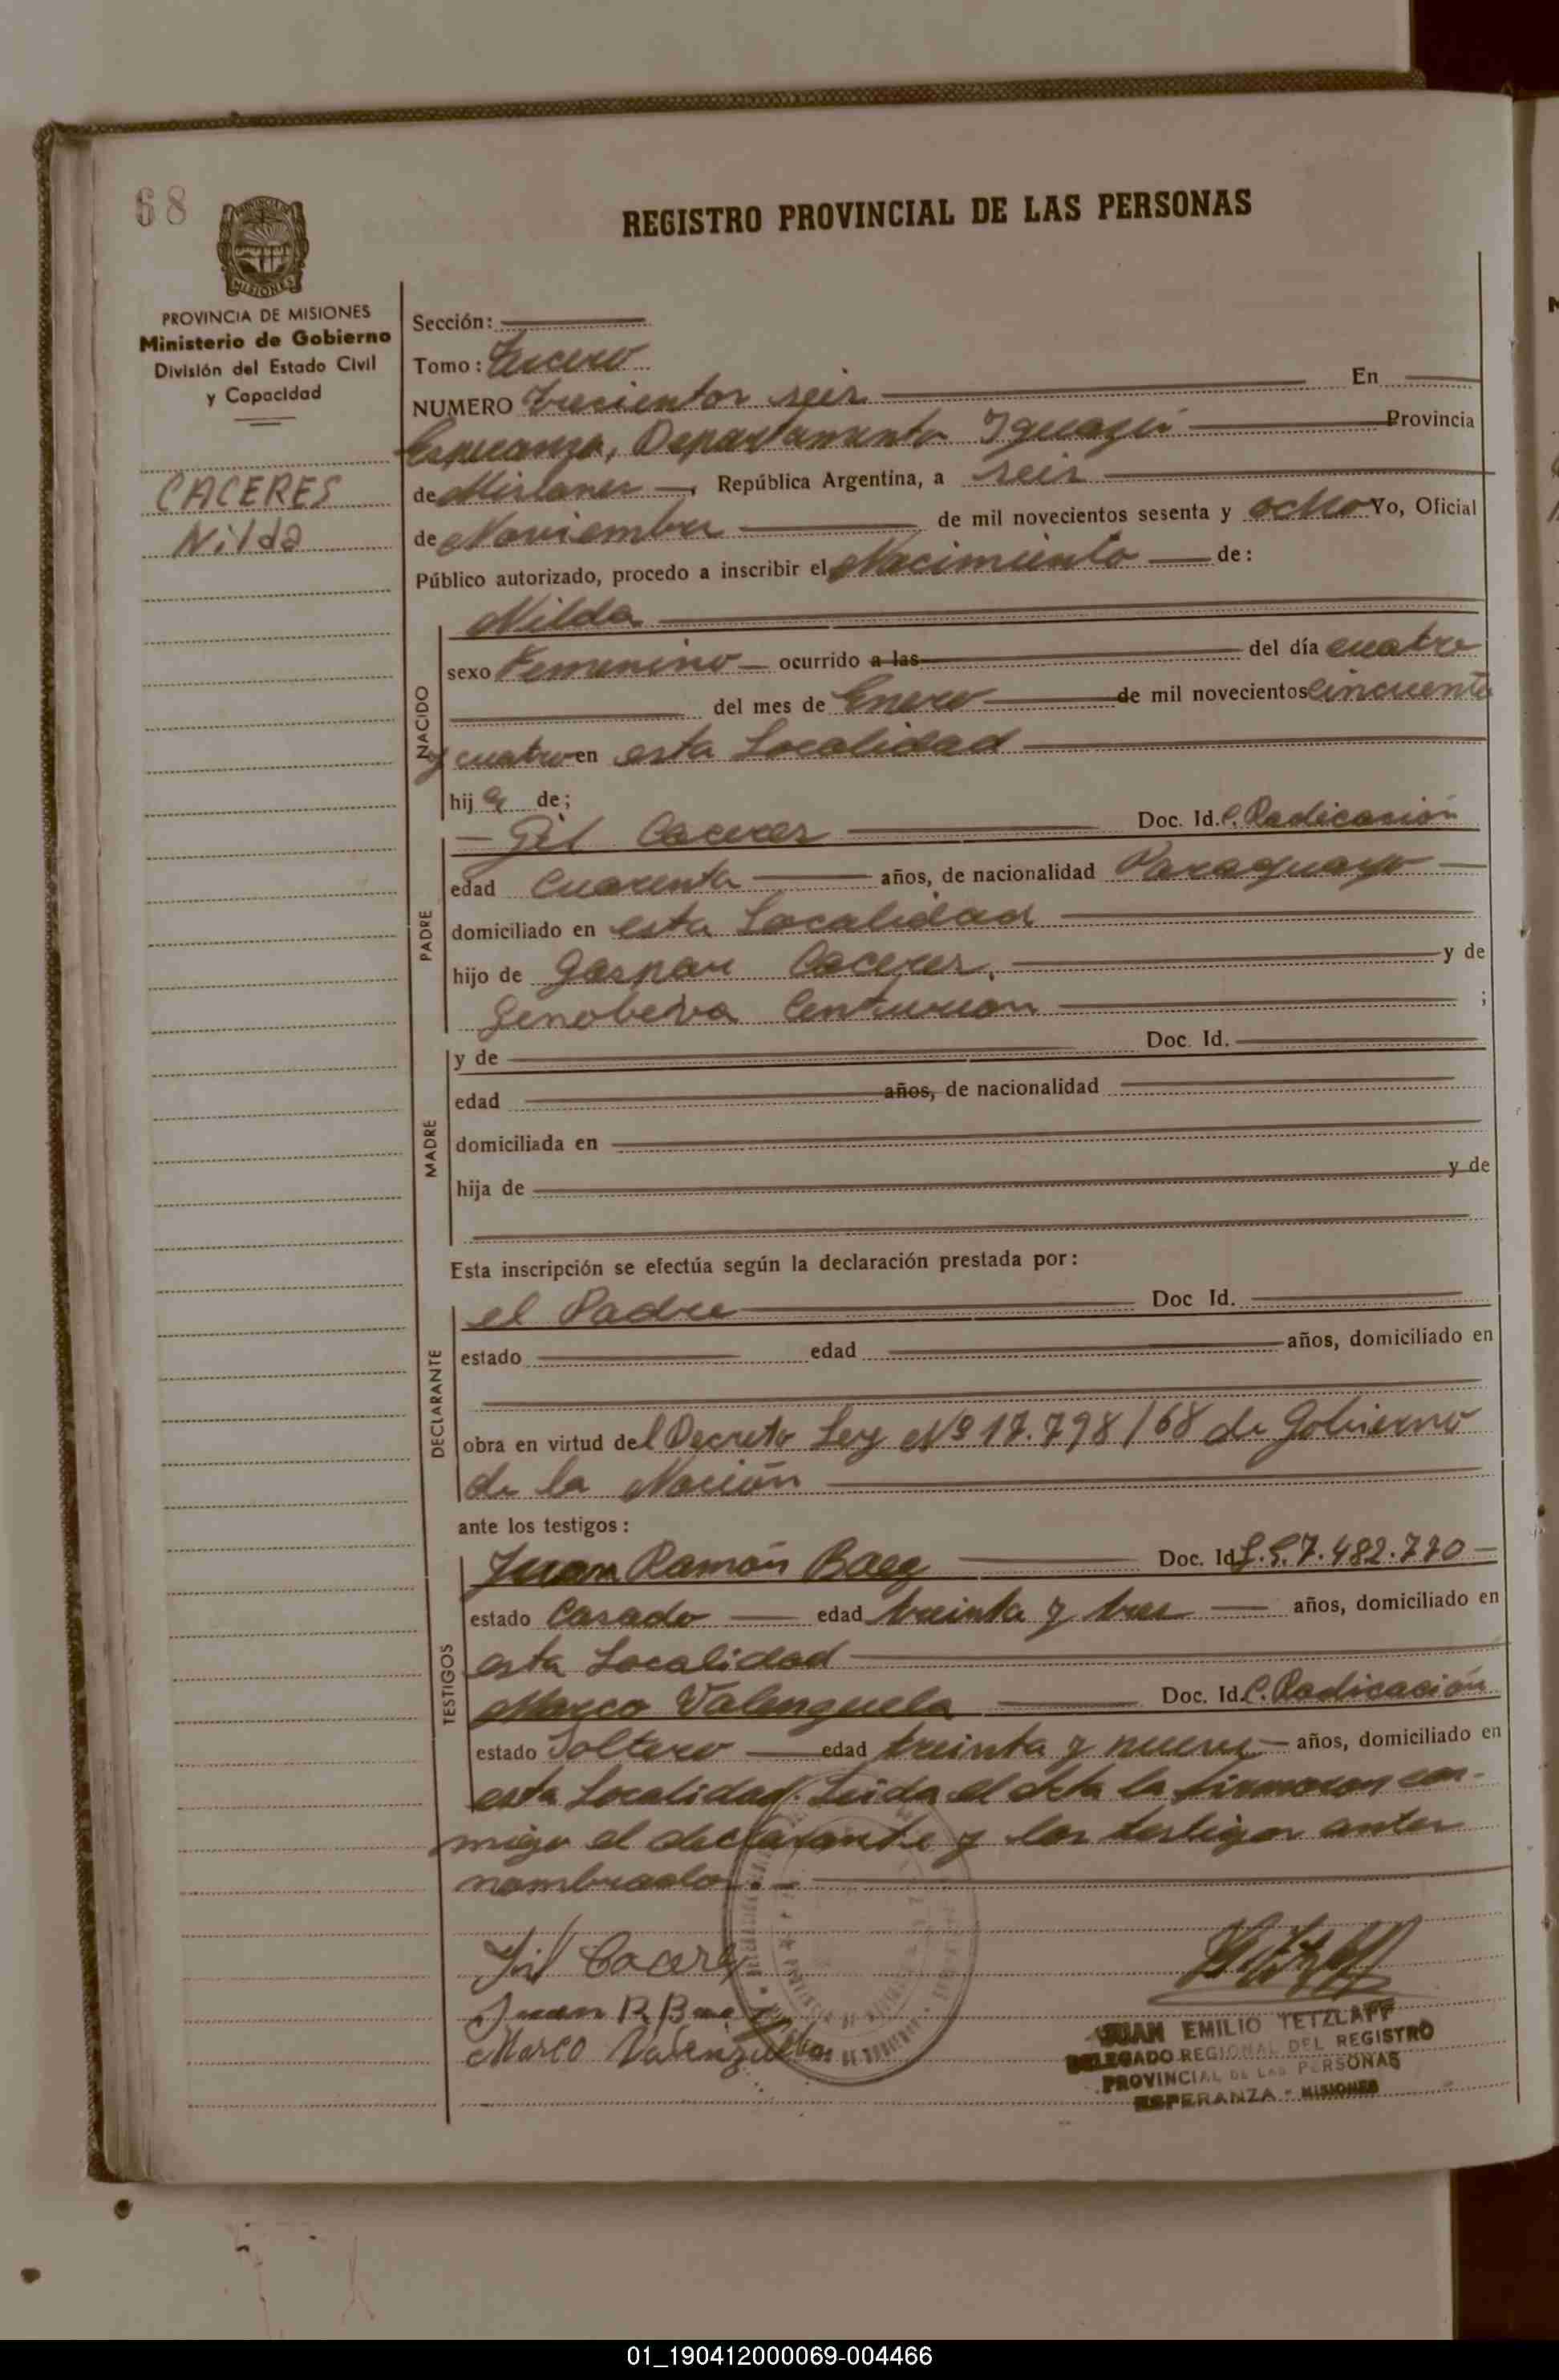 68
REGISTRO PROVINCIAL DE LAS PERSONAS
PROVINCIA DE MISIONES
MISIONES
PROVINCIA DE MISIONES
Ministerio de Gobierno
División del Estado Civil
y Capacidad
CACERES
Nilda
Sección:
Tomo: Tercero
NUMERO Trecientos seis En
Esperanza, Departamento Iguazú Provincia
de Misiones, República Argentina, a seis
de Noviembre de mil novecientos sesenta y ocho Yo, Oficial
Público autorizado, procedo a inscribir el Nacimiento de:
NACIDO
Nilda
sexo Femenino ocurrido a las del día cuatro
del mes de Enero de mil novecientos cincuenta
y cuatro en esta Localidad
hij a de;
PADRE
Gil Caceres Doc. Id. C. Radicación
edad Cuarenta años, de nacionalidad Paraguayo
domiciliado en esta Localidad
hijo de Gaspar Caceres, y de
Genobeva Centurion ;
MADRE
y de Doc. Id.
edad años, de nacionalidad
domiciliada en
hija de y de
Esta inscripción se efectúa según la declaración prestada por:
DECLARANTE
el Padre Doc Id.
estado edad años, domiciliado en
obra en virtud del Decreto Ley Nº 17.798/68 de Gobierno
de la Nación
ante los testigos:
TESTIGOS
Juan Ramón Baez Doc. Id 7.482.770
estado Casado edad treinta y tres años, domiciliado en
esta Localidad
Marco Valenzuela Doc. Id. C. Radicación
estado Soltero edad treinta y nueve años, domiciliado en
esta Localidad. Leida el Acta la firmaron con-
migo el declarante y los testigos antes
nombrados.-
Gil Caceres
Juan R. Baez
Marco Valenzuela
JUAN EMILIO TETZLAFF
DELEGADO REGIONAL DEL REGISTRO
PROVINCIAL DE LAS PERSONAS
ESPERANZA - MISIONES
01_190412000069-004466